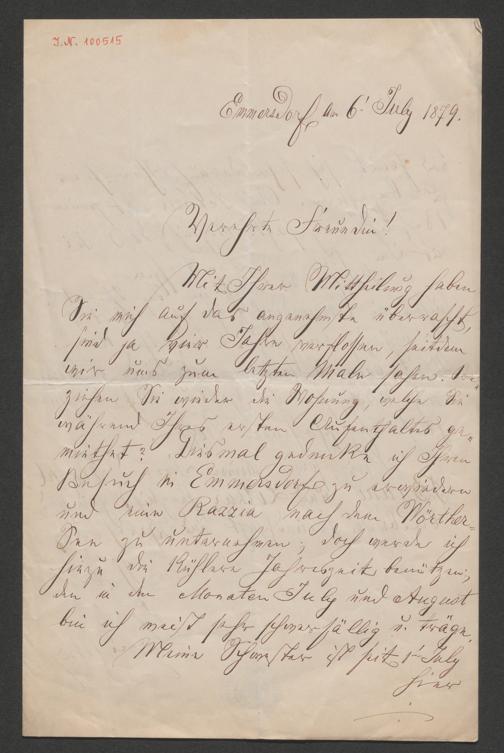 J.N. 100515
Emmersdorf am 6t July 1879.
Verehrte Freundin!
Mit Ihrer Mittheilung haben
Sie mich auf das angenehmste überrascht,
sind ja vier Jahre verflossen, seitdem
wir uns zum letzten Male sahen. Be=
ziehen Sie wieder die Wohnung, welche Sie
während Ihres ersten Aufenthaltes ge=
miethet? Diesmal gedenke ich Ihren
Besuch in Emmersdorf zu erwiedern
und eine Razzia nach dem Wörther=
See zu unternehmen; doch werde ich
hiezu die kühlere Jahreszeit benützen;
den in den Monaten July und August
bin ich meist sehr schwerfällig u. träge.
Meine Schwester ist seit 1t July
hier